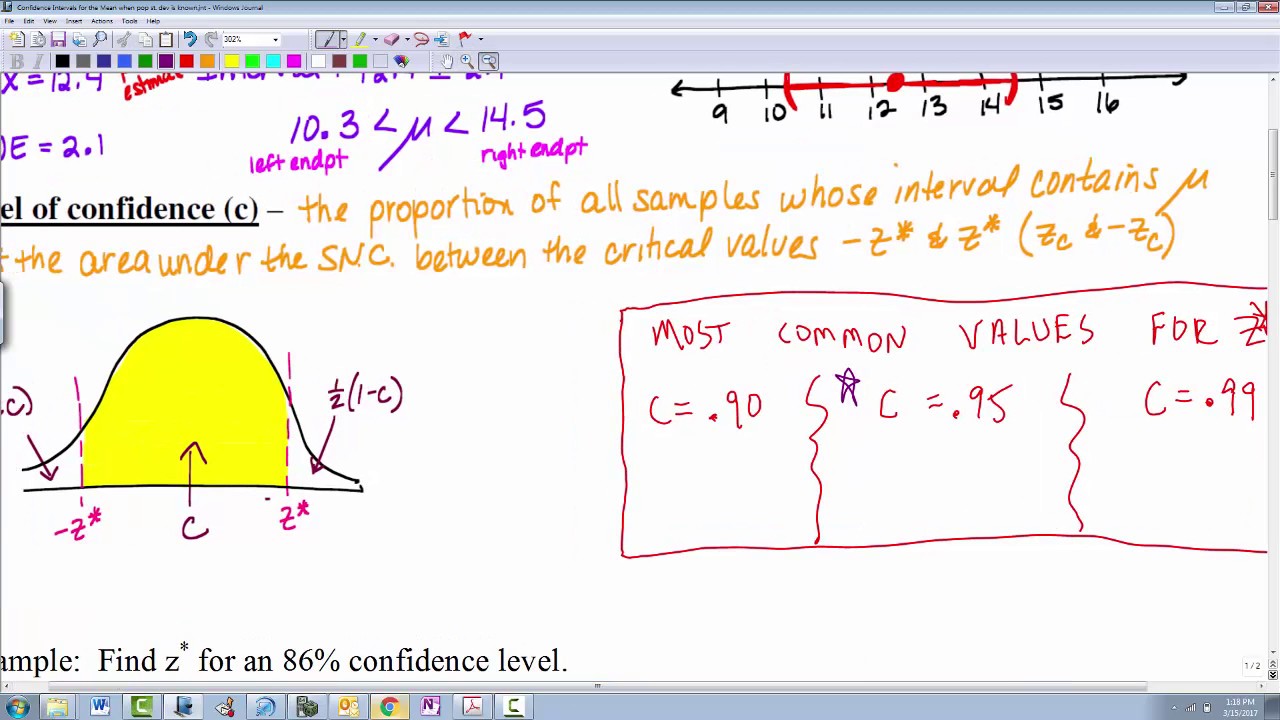 Confidence Intervals for the Mean when pop st. dev is known.jnt - Windows Journal
File Edit View Insert Actions Tools Help
302%
B I
x = 12.4
9 10 11 12 13 14 15 16
10.3 < μ < 14.5
left endpt right endpt
OE = 2.1
el of confidence (c) – the proportion of all samples whose interval contains μ
the area under the S.N.C. between the critical values -z* & z* (zc & -zc)
MOST COMMON VALUES FOR z*
C = .90 C = .95 C = .99
.C) ½(1-C)
-z* C z*
ample: Find z* for an 86% confidence level.
1 / 2
1:18 PM
3/15/2017